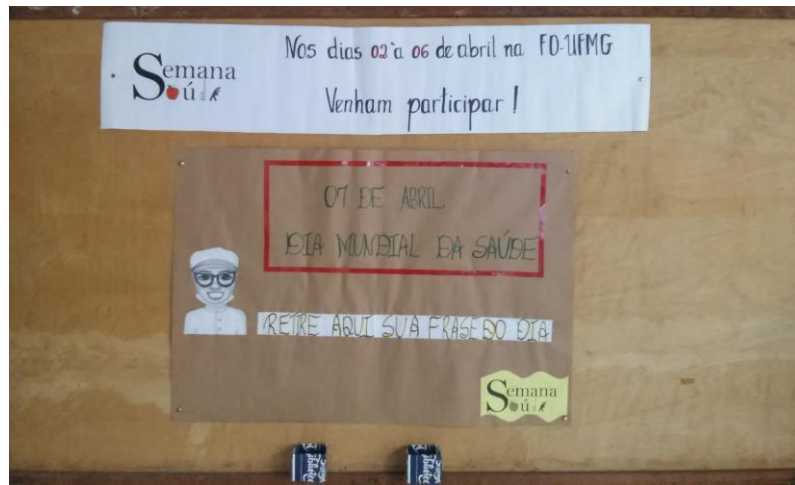 Semana
Sαú
Nos dias 02 à 06 de abril na FO-UFMG
Venham participar!
07 DE ABRIL
DIA MUNDIAL DA SAÚDE
RETIRE AQUI SUA FRASE DO DIA
Semana
Saú